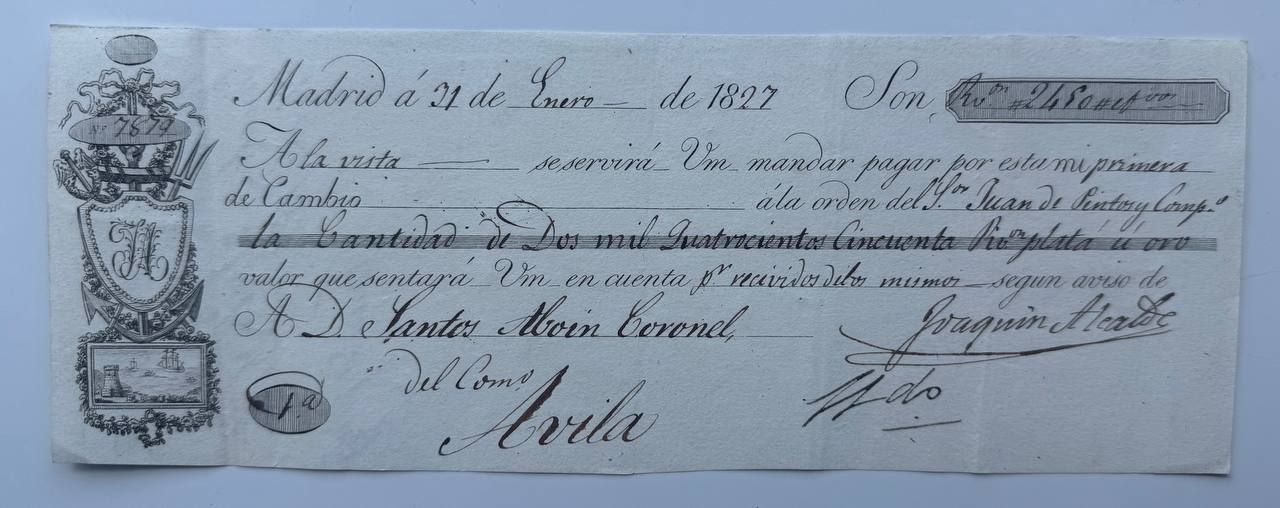 Madrid á 31 de Enero de 1827 Son, Rvon #2450# effvos
No 7879
A la vista se servirá Vm mandar pagar por esta mi primera
de Cambio á la orden del Sor Juan de Pintos y Compa
la Cantidad de Dos mil Quatrocientos Cincuenta Rvon plata ú oro
valor que sentará Vm en cuenta pr recividos dilos mismos segun aviso de
A D. Santos Moin Coronel,
Joaquin Alcalde
1a
del Como
Avila